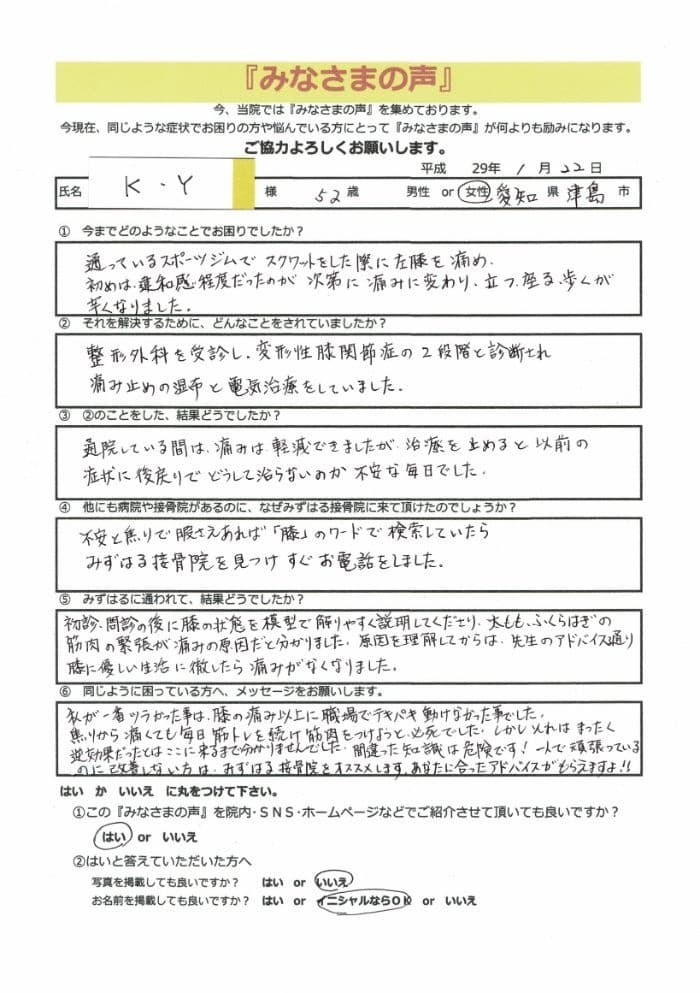 『みなさまの声』
今、当院では『みなさまの声』を集めております。
今現在、同じような症状でお困りの方や悩んでいる方にとって『みなさまの声』が何よりも励みになります。
ご協力よろしくお願いします。
平成 29年 1月 22日
氏名 K・Y 様 52歳 男性 or 女性 愛知県 津島市
① 今までどのようなことでお困りでしたか？
通っているスポーツジムでスクワットをした際に左膝を痛め、
初めは、違和感程度だったのが次第に痛みに変わり、立つ、座る、歩くが
辛くなりました。
② それを解決するために、どんなことをされていましたか？
整形外科を受診し、変形性膝関節症の2段階と診断され
痛み止めの湿布と電気治療をしていました。
③ ②のことをした、結果どうでしたか？
通院している間は、痛みは軽減できましたが、治療を止めると以前の
症状に後戻りでどうして治らないのか不安な毎日でした。
④ 他にも病院や接骨院があるのに、なぜみずはる接骨院に来て頂けたのでしょうか？
不安と焦りで暇さえあれば「膝」のワードで検索していたら
みずはる接骨院を見つけすぐお電話をしました。
⑤ みずはるに通われて、結果どうでしたか？
初診、問診の後に膝の状態を模型で解りやすく説明してくださり、太もも、ふくらはぎの
筋肉の緊張が痛みの原因だと分かりました。原因を理解してからは、先生のアドバイス通り
膝に優しい生活に徹したら痛みがなくなりました。
⑥ 同じように困っている方へ、メッセージをお願いします。
私が一番ツラかった事は、膝の痛み以上に職場でテキパキ動けなかった事でした。
焦りから痛くても毎日筋トレを続け筋肉をつけようと必死でした。しかしそれはまったく
逆効果だったとはここに来るまで分かりませんでした。間違った知識は危険です！一人で頑張っている
のに改善しない方は、みずはる接骨院をオススメします。あなたに合ったアドバイスがもらえますよ!!
はい か いいえ に丸をつけて下さい。
①この『みなさまの声』を院内・SNS・ホームページなどでご紹介させて頂いても良いですか？
はい or いいえ
②はいと答えていただいた方へ
写真を掲載しても良いですか？ はい or いいえ
お名前を掲載しても良いですか？ はい or イニシャルならOK or いいえ